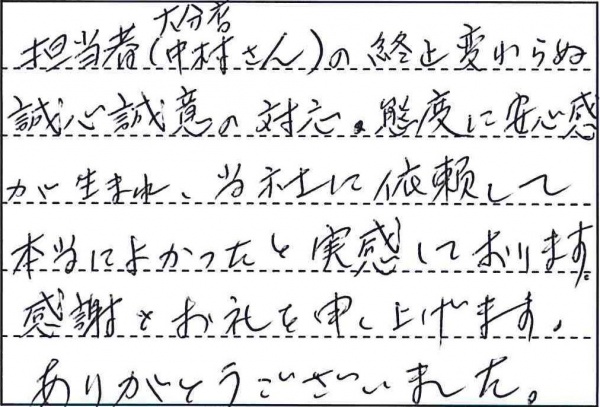 大分店
担当者(中村さん)の終止変わらぬ
誠心誠意の対応、態度に安心感
が生まれ、当社に依頼して
本当によかったと実感しております。
感謝とお礼を申し上げます。
ありがとうございました。